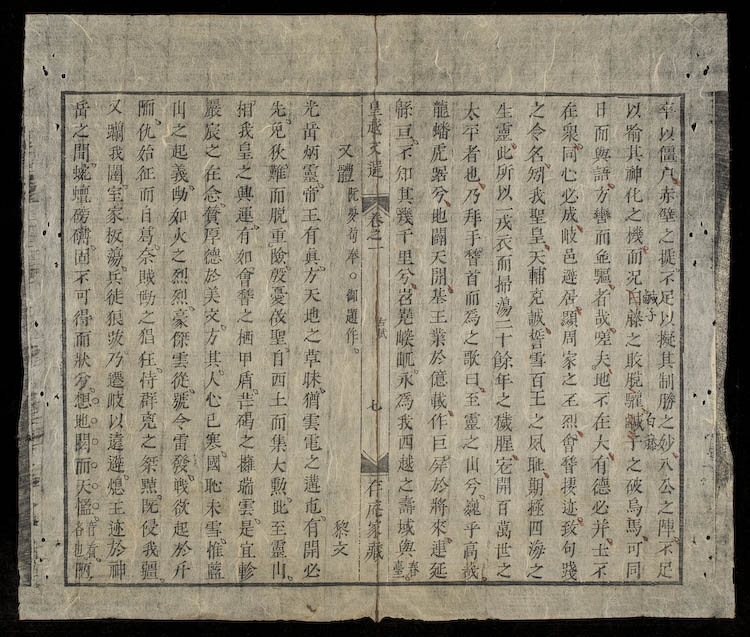 卒以僵尸赤壁之捷不足以擬其制勝之妙八公之陣不足
以喻其神化之機而况白藤之敗脫驩鹹子之破烏馬可同
鹹子
白藤
日而與語方轡而並驅者哉嗟夫地不在大有德必井士不
在衆同心必成岐邑避狄顯周家之丕烈會稽接迹致句踐
之令名矧我聖皇天輔克誠誓雪百王之夙耻期極四海之
生靈此所以一戎衣而掃蕩二十餘年之穢腥宏開百萬世之
太平者也乃拜手稽首而爲之歌曰至靈之山兮巍乎高哉
龍蟠虎踞兮地闢天開基王業於億載作巨屏於將來連延
緜亘不知其幾千里兮岧嶤崚屼永爲我西越之壽域與春臺
皇越文選 卷之一 古賦 七 存庵家藏
又體 阮夢荀奉○御題作 黎文
光岳炳靈帝王有真方天地之草昧猶雲電之遘屯有開必
先免狄難而脫重險殷憂啓聖自西土而集大勲此至靈山
相我皇之興運有如會稽之栖甲盾芒碭之擁瑞雲是宜軫
嚴宸之在念賁厚德於美文方其人心已寒國恥未雪惟藍
山之起義勛如火之烈烈豪傑雲從號令雷發戰欲起於斤
而仇始征而自葛奈賊勛之猖狂恃群克之桀黠既侵我疆
又躪我圉室家板蕩兵徒狼㹳乃遷岐以遠避熄王迹於神
岳之間蛇蟺磅礴固不可得而狀兮想地闢而天慳